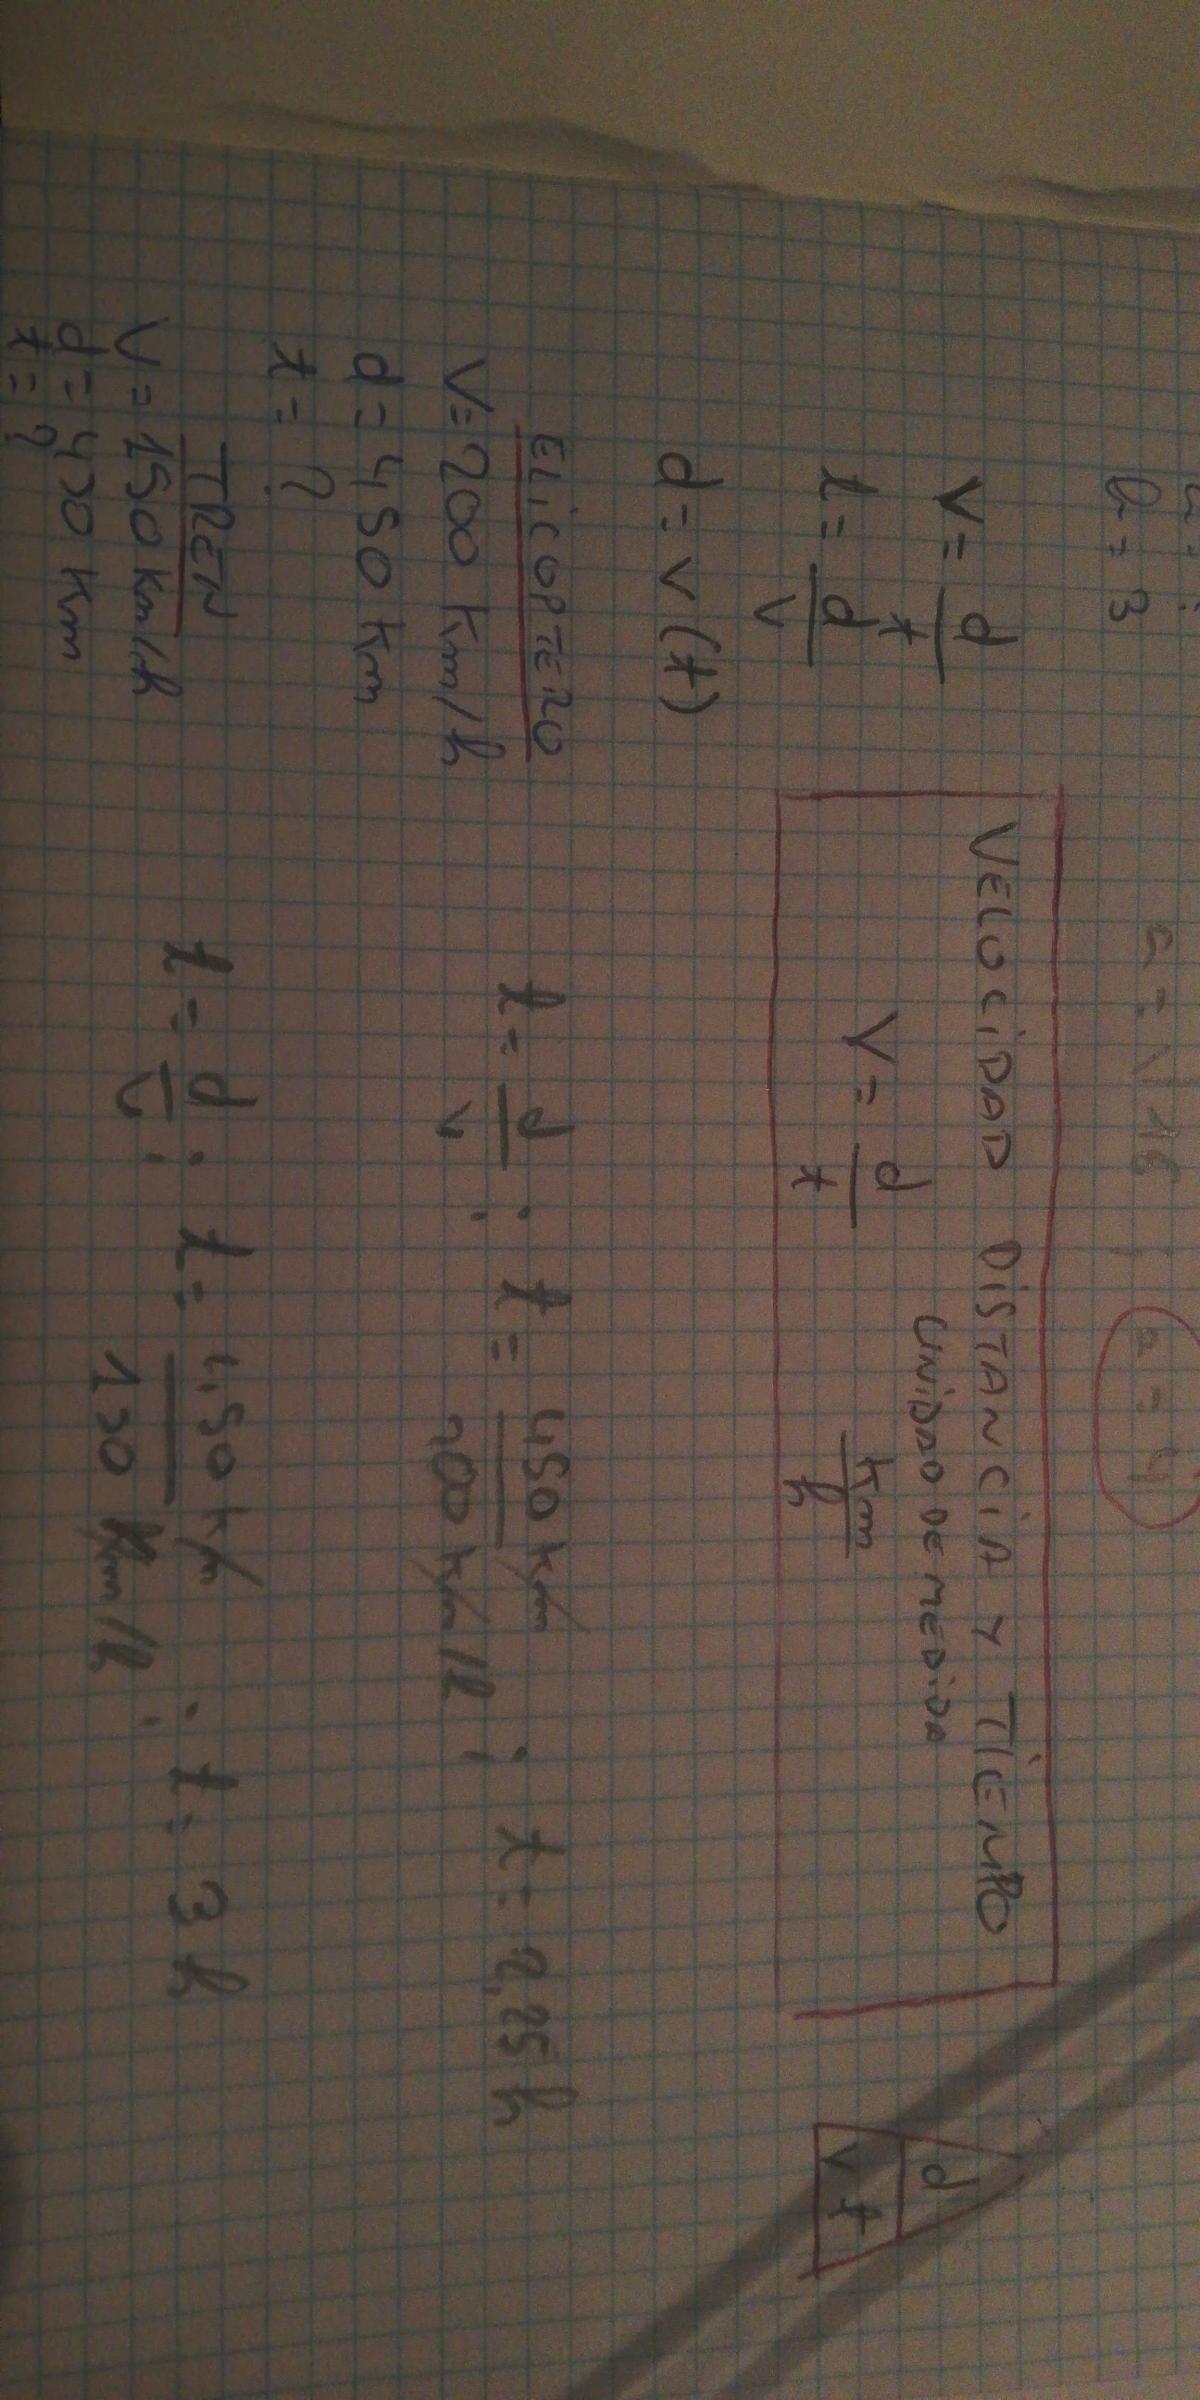 b = 3
a = √16 ; a = 4
VELOCIDAD DISTANCIA Y TIEMPO
UNIDAD DE MEDIDA
V = d/t
km/h
d
v t
V = d/t
t = d/v
d = v (t)
ELiCOPTERO
V = 200 km/h
d = 450 km
t = ?
t = d/v ; t = 450 km / 200 km/h ; t = 2,25 h
TREN
V = 150 km/h
d = 450 km
t = ?
t = d/v ; t = 450 km / 150 km/h ; t = 3 h